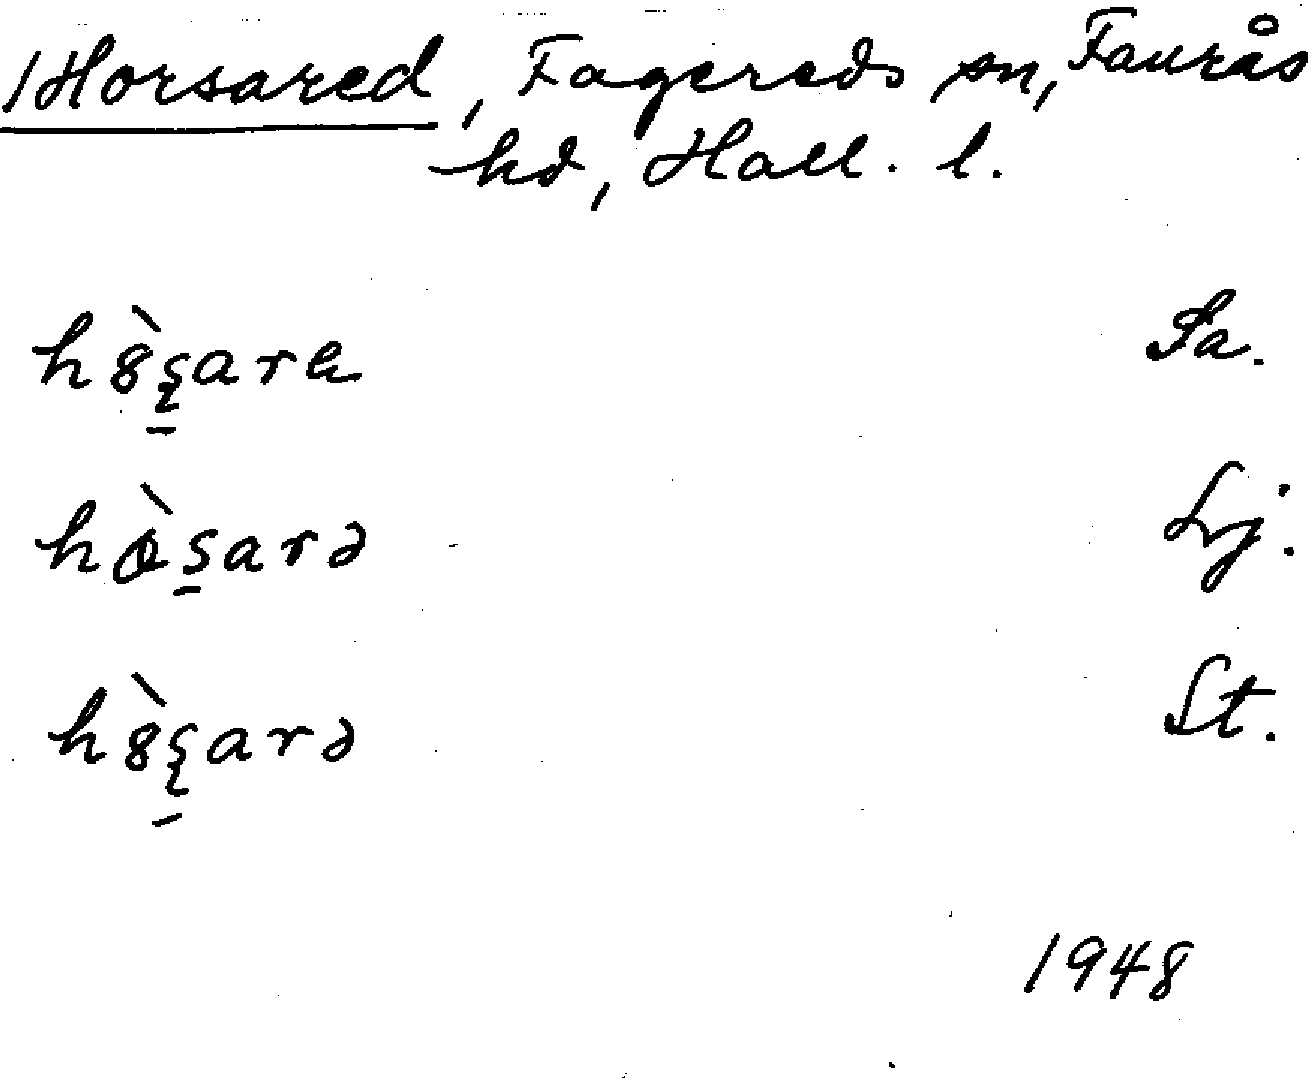 Horsared, Fagereds sn, Faurås
hd, Hall. l.
h8̀ʂ̠arɐ Sa.
hɵ̀s̠arə Lj.
h8̀ʂ̠arə St.
1948